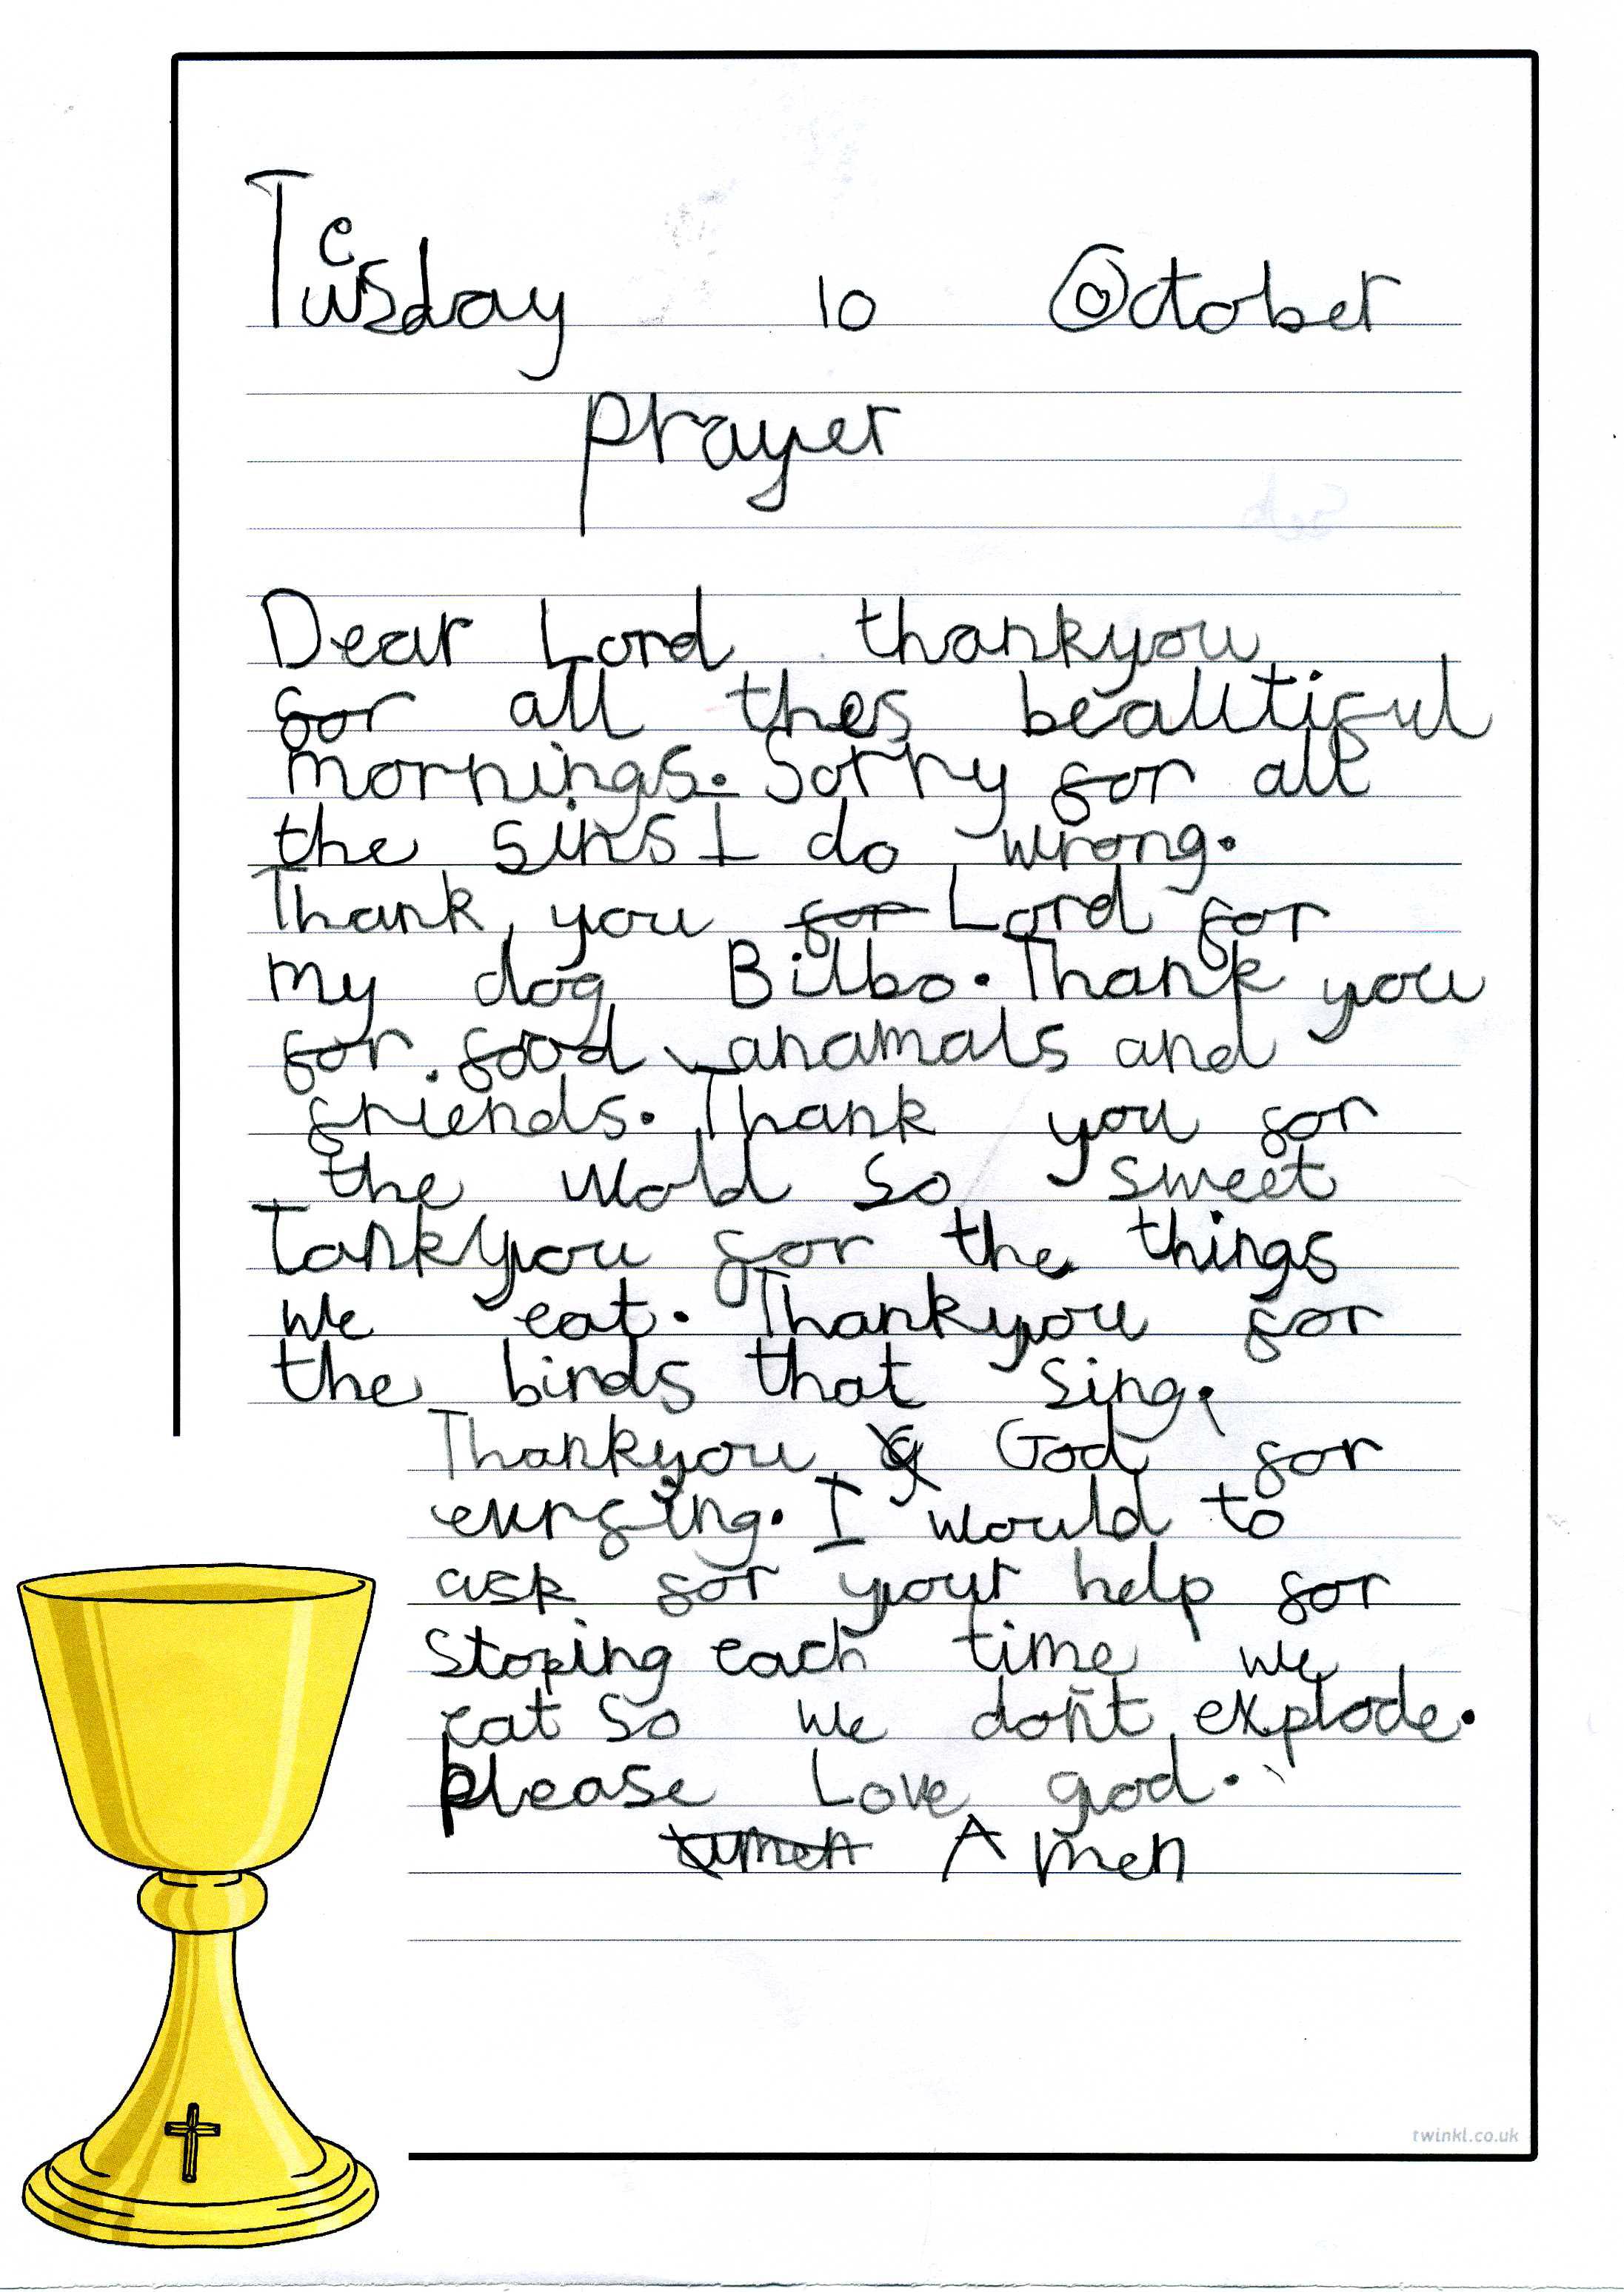 Tuesday 10 October
prayer
Dear Lord thankyou
for all thes beautiful
mornings. Sorry for all
the sins I do wrong.
Thank you for Lord for
my dog Bilbo. Thank you
for food, anamals and
friends. Thank you for
the wold so sweet
Tankyou for the things
we eat. Thankyou for
the birds that sing.
Thankyou God for
evrging. I would to
ask for your help for
stoping each time we
eat so we don't explode.
please Love god.
Amen
twinkl.co.uk